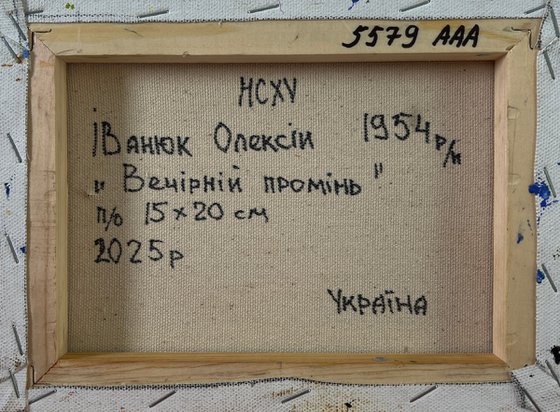 5579 ААА
НСХУ
Іванюк Олексій 1954 р/н
„ Вечірній промінь "
п/о 15 × 20 см
2025р
Україна